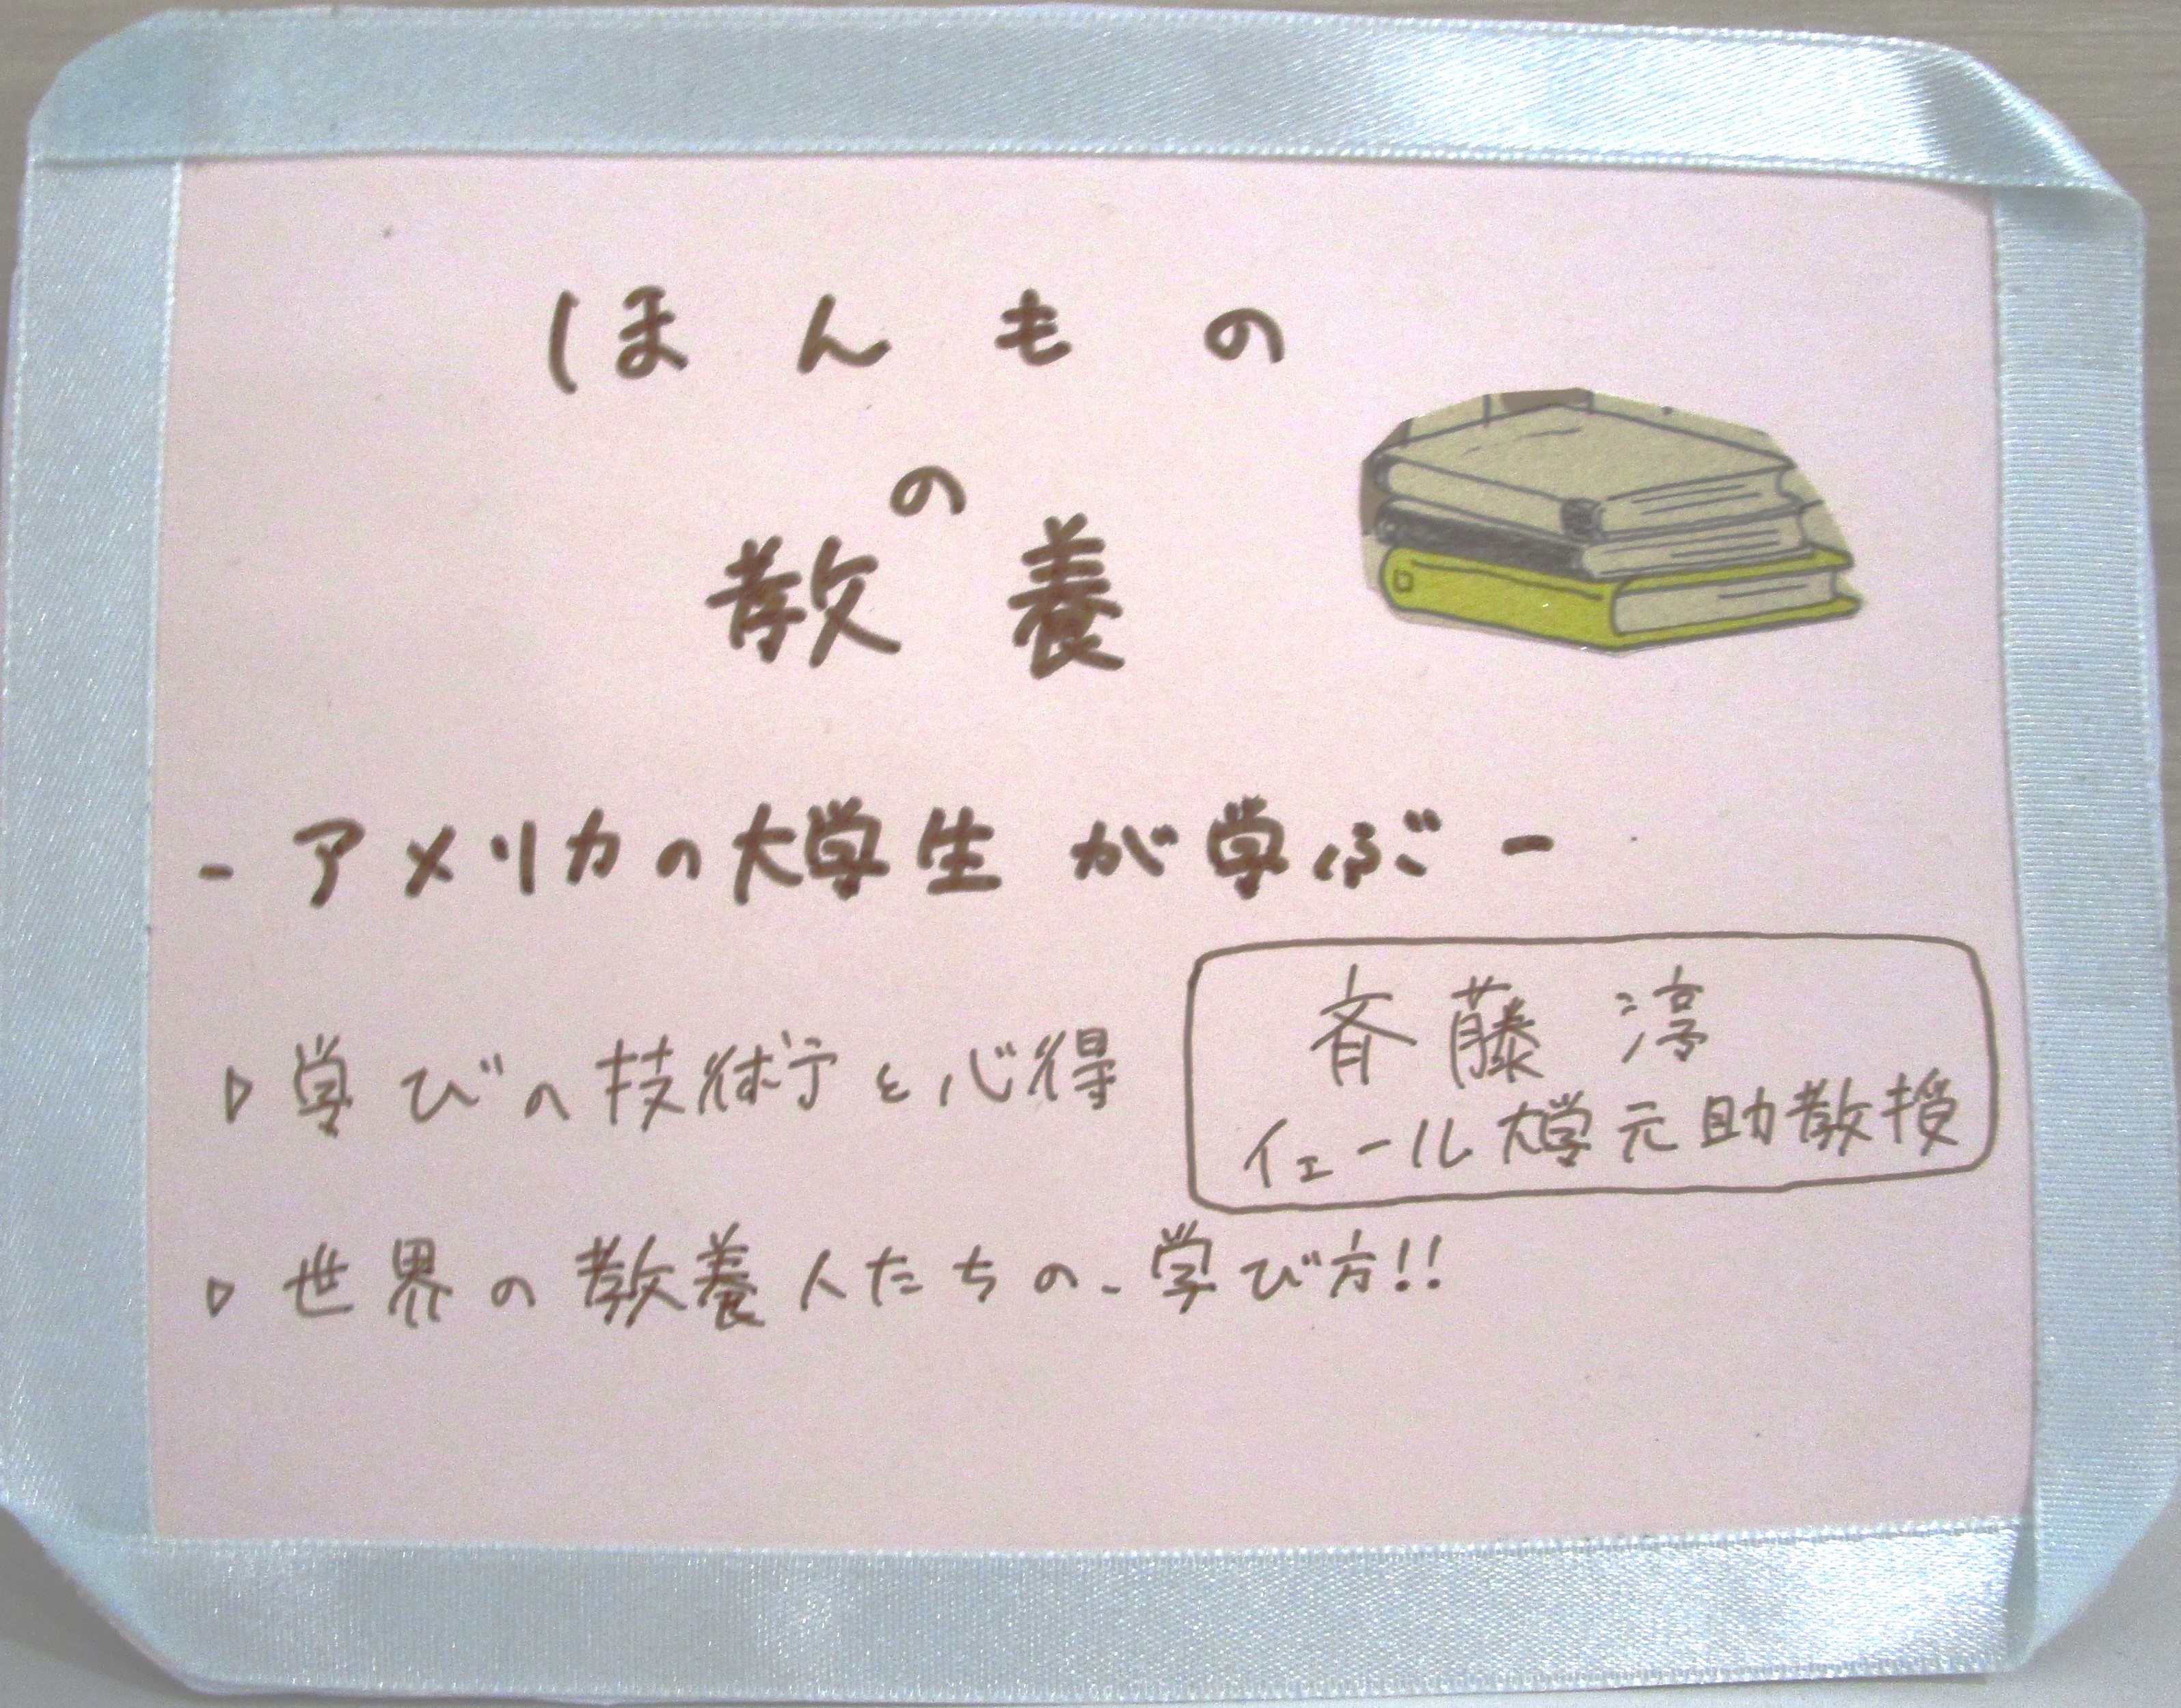 ほんもの
の
教養
- アメリカの大学生が学ぶ -
斉藤 淳
イェール大学元助教授
▷ 学びの技術と心得
▷ 世界の教養人たちの、学び方!!